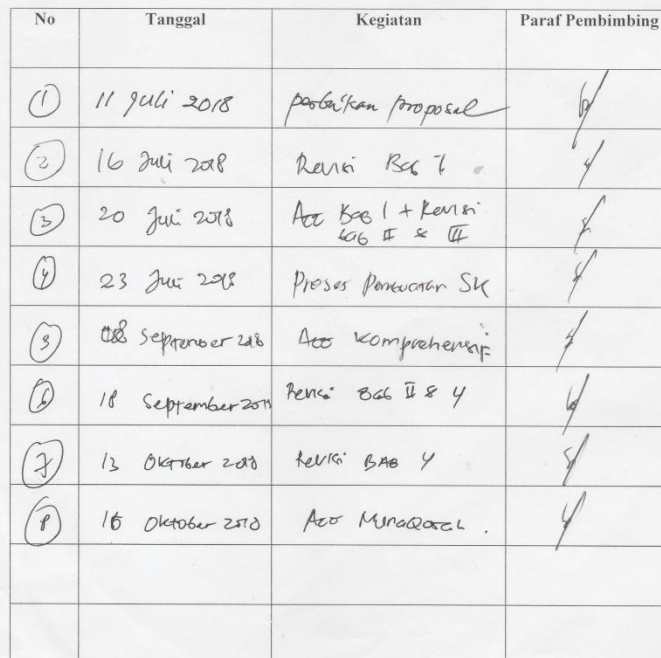 No Tanggal Kegiatan Paraf Pembimbing
1 11 Juli 2018 perbaikan proposal
2 16 Juli 2018 Revisi Bab I
3 20 Juli 2018 Acc Bab I + Revisi
Bab II & III
4 23 Juli 2018 Proses Pembuatan SK
5 08 September 2018 Acc Komprehensif
6 18 September 2018 Revisi Bab II & 4
7 13 Oktober 2018 Revisi BAB 4
8 16 Oktober 2018 Acc Munaqosah.